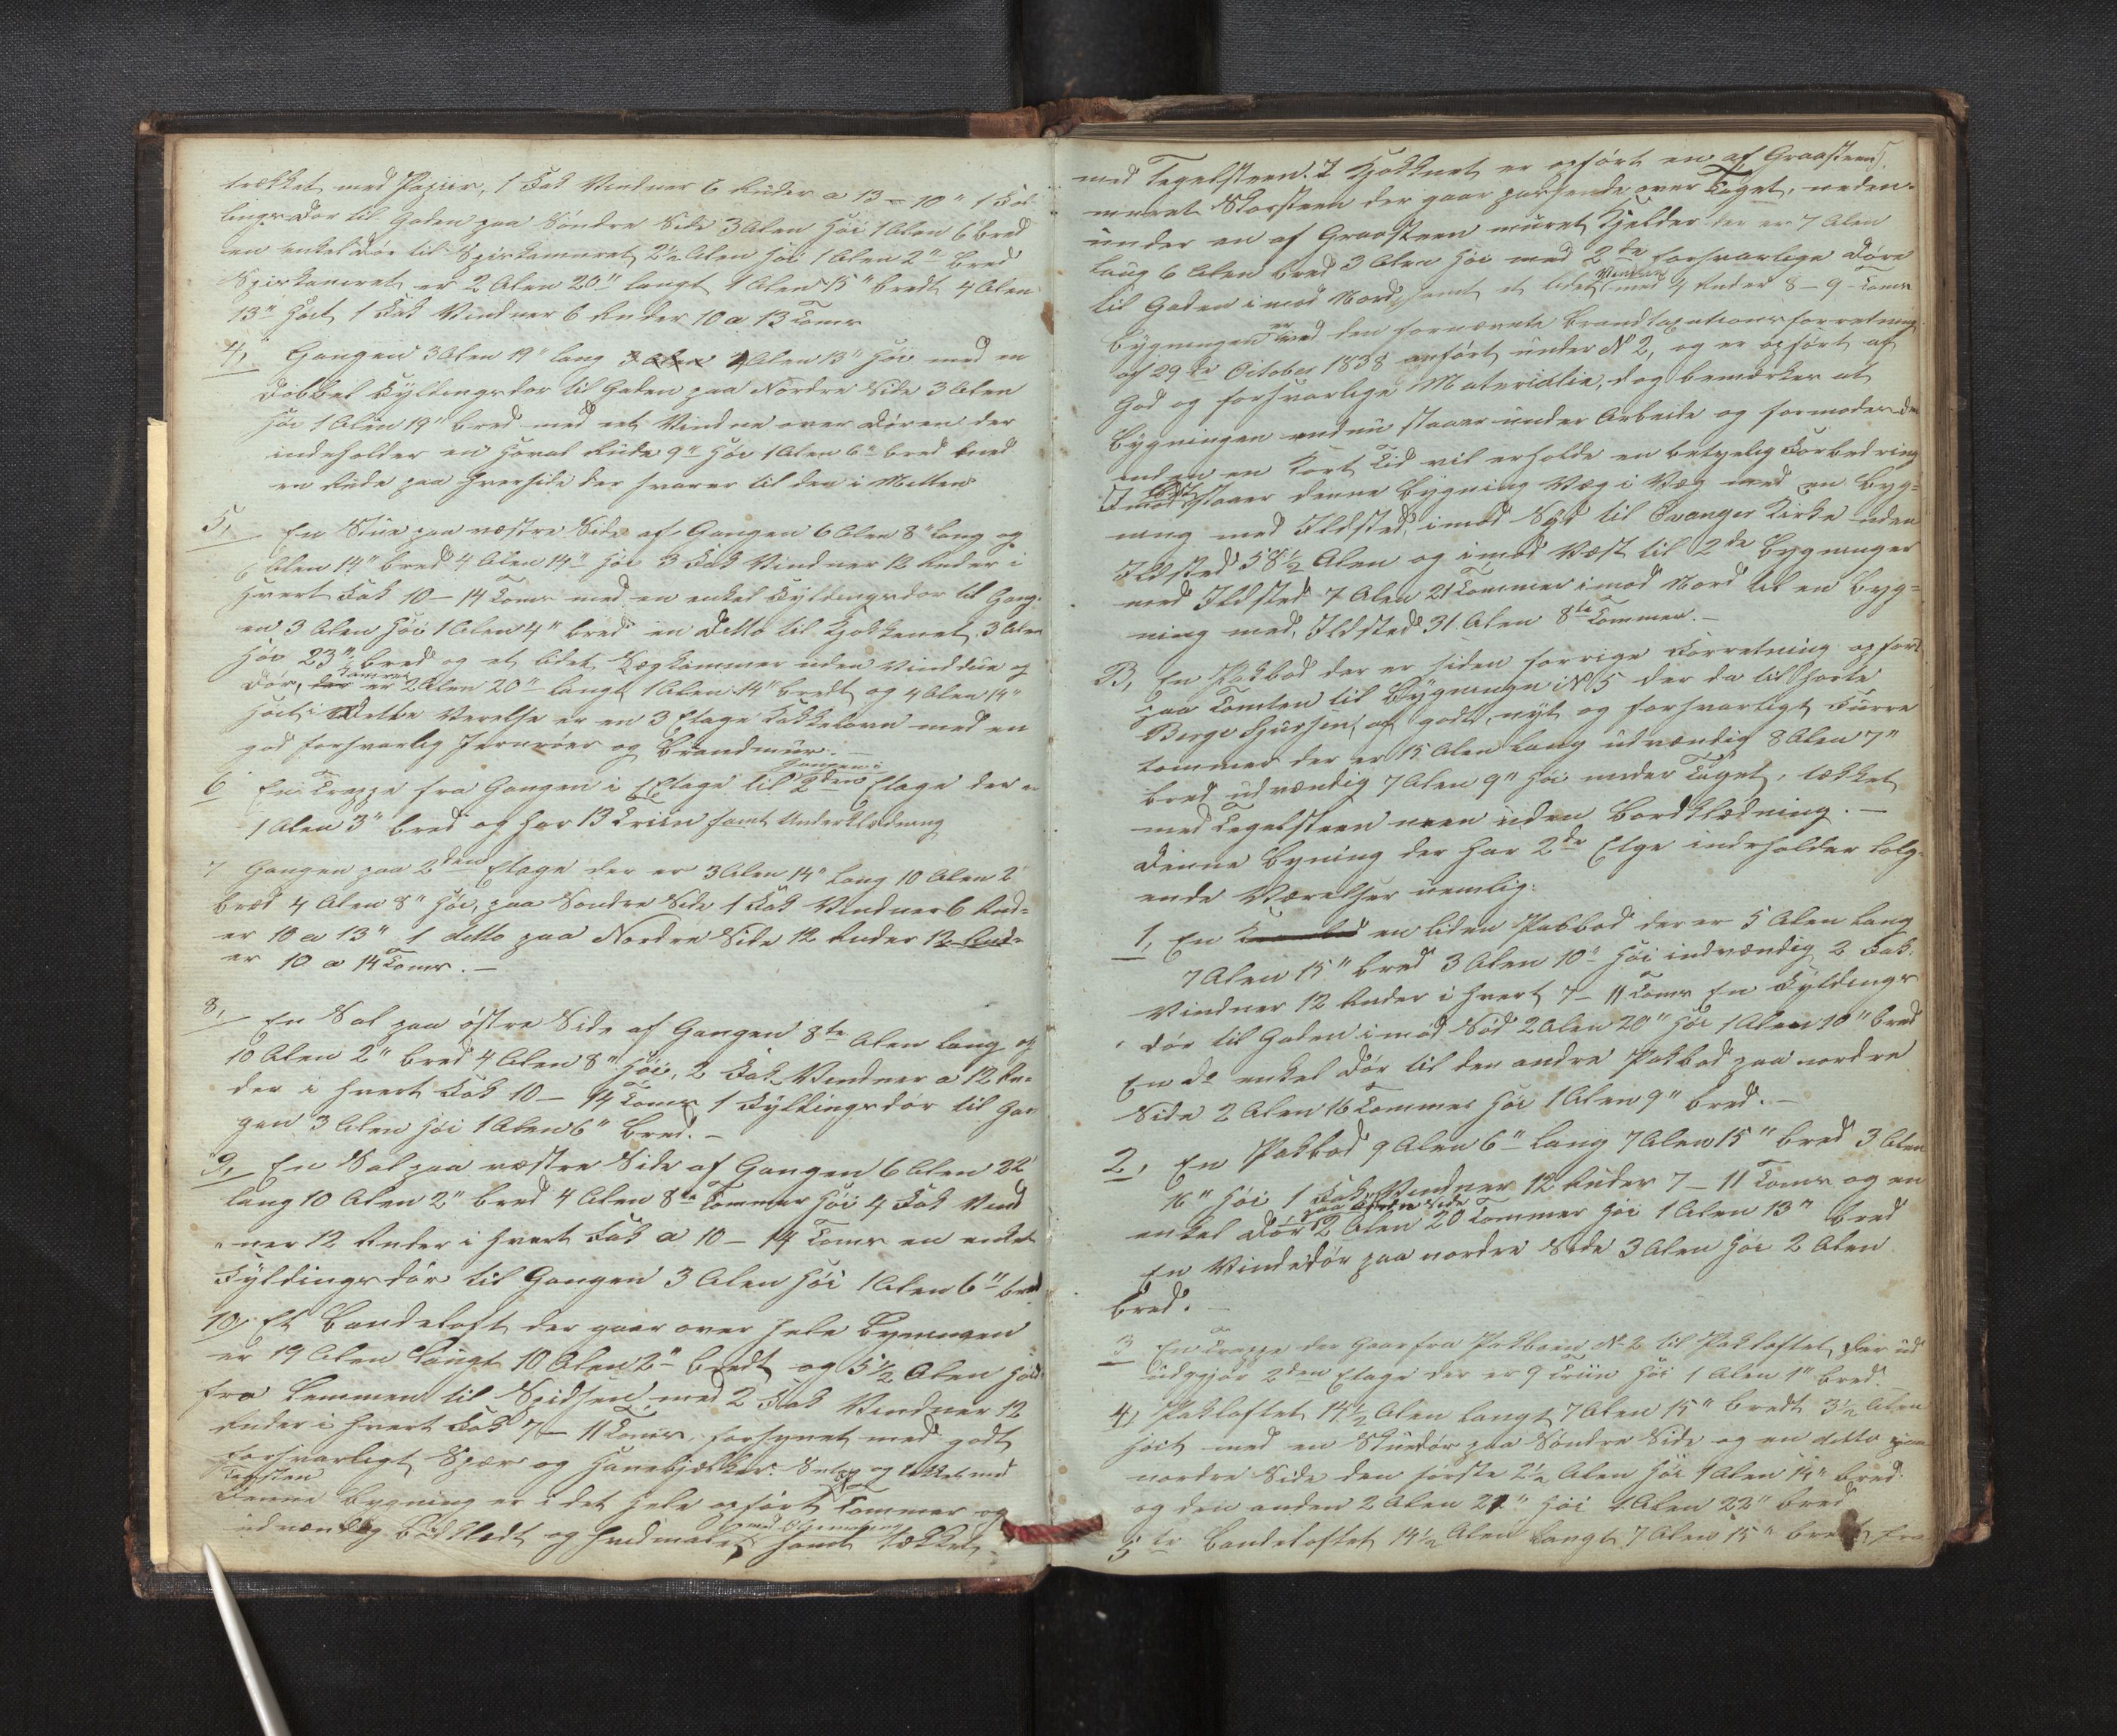 trækket med Papiir, 1 Fak Vinduer 6 Ruder a 13 - 10" 1 Fÿl
lings Dør til Gaden paa Søndre Side 3 Alen høi 1 Alen 6" bred
en enkel Dør til Spiskameret 2½ Alen høi 1 Alen 2" bred
Spiskameret er 2 Alen 20" langt 1 Alen 15" bredt 4 Alen
13" høit, 1 Fak Vinduer 6 Ruder 10 a 13 Tom̅r
4, Gangen 3 Alen 19" lang 3 Alen 4 Alen 13" høi med en
dobbel Fÿldingsdør til Gaden paa Nordre Side 3 Alen
høi 1 Alen 19" bred med et Vindue over Døren der
indeholder en Rude 9" høi 1 Alen 6" bred med
en Rude paa hver side der svarer til den i Mitten
5, En Stue paa vestre Side af Gangen 6 Alen 8" lang og
6 Alen 14" bred 4 Alen 14" høi 3 Fak Vinduer 12 Ruder i
hvert Fak 10 - 14 Tom̅r med en enkel Fÿldingsdør til Gang-
en 3 Alen høi 1 Alen 4" bred en Ditto til Kjøkkenet 3 Alen
høi 23" bred og et lidet Kammer uden Vindue og
Dør, der er 2 Alen 20" langt 1 Alen 14" bredt og 4 Alen 14"
høit, i Dette Verelse er en 3 Etage Kakkelovn med en
god forsvarlig Jernrøer og Brandmur. -
6 En Trappe fra Gangen i 1 Etage til Gangen i 2den Etage der er
1 Alen 3" bred og har 13 Triin samt Underklædning
7 Gangen paa 2den Etage der er 3 Alen 14" lang 10 Alen 2"
bred 4 Alen 8" høi, paa Søndre Side 1 Fak Vinduer 6 Rud=
er 10 a 13" 1 ditto paa Nordre Side 12 Ruder 12 Rud=
er 10 a 14 Tom̅r. -
8, En Sal paa østre Side af Gangen 8te Alen lang og
10 Alen 2" bred 4 Alen 8" høi, 2 Fak Vinduer a 12 Ru=
der i hvert Fak 10 - 14 Tom̅r 1 Fÿldingsdør til Gan
gen 3 Alen høi 1 Alen 6" bred. -
9, En Sal paa vestre Side af Gangen 6 Alen 22"
lang 10 Alen 2" bred 4 Alen 8te Tommer høi 4 Fak Vind
uer 12 Ruder i hvert Fak a 10 - 14 Tom̅r en enkel
Fÿldingsdør til Gangen 3 Alen høi 1 Alen 6" bred
10, Et Bandeloft der gaar over hele Bygningen
er 19 Alen langt 10 Alen 2" bredt og 5½ Alen høit
fra Lemmen til Spidsen, med 2 Fak Vinduer 12
Ruder i hvert Fak 7 - 11 Tom̅r, forsynet med godt
forsvarligt Spær og Hanebjælker. og tækket med
Teglsten
Denne bygning er i det hele opført af Tømmer og
udvændig Bordklædt og hvidmalet med Oliemaling samt tækket
med Tegelsteen. I Kjøkkenet er opført en af Graasteen
muret Skorsteen der gaar passende over Taget, neden-
under en af Graasteen muret Kjelder der er 7 Alen
lang 6 Alen bred 3 Alen høi med 2de forsvarlige Døre
til Gaden imod Nord samt et lidet Vindue med 4 Ruder 8 - 9 Tom̅r
Bygningen er ved den fornævnte Brandtaxationsforretning
af 29de October 1838 anført under N° 2, og er opført af
God og forsvarlige Materialie, dog bemærkes at
Bygningen endnu staaer under Arbeide og formodes den
inden en kort Tid vil erholde en betydelig Forbedring
Imod Øst staaer denne Bygning Væg i Væg med en Byg=
ning med Ildsted, imod Syd til Evanger Kirke uden
Ildsted 58½ Alen og imod Vest til 2de Bygninger
med Ildsted 7 Alen 21 Tommer imod Nord til en Byg=
ning med Ildsted 31 Alen 8te Tommer. -
B, En Pakbod der er siden forrige Forretning opført
paa Tomten til Bygningen N° 5 der da tilhørte
Berge af godt, nyt og forsvarligt Furre
tømmer der er 15 Alen lang udvændig 8 Alen 7"
bred udvændig 7 Alen 9" høi under Taget, tækket
med Tegelsteen men uden Bordklædning. -
Denne Byning der har 2de Etge indeholder følg-
ende Værelser nemlig:
1, En en liden Pakbod der er 5 Alen lang
7 Alen 15" bred 3 Alen 10" høi indvændig 2 Fak
Vinduer 12 Ruder i hvert 7 - 11 Tom̅r En Fÿldings
dør til Gaden imod Sød 2 Alen 20" høi 1 Alen 10" bred
En do enkel Dør til den andre Pakbod paa nordre
Side 2 Alen 16 Tommer høi 1 Alen 9" bred. -
2, En Pakbod 9 Alen 6" lang 7 Alen 15" bred 3 Alen
16" høi 1 Fak Vinduer 12 Ruder 7 - 11 Tom̅r og en
enkel Dør paa Side 2 Alen 20 Tommer høi 1 Alen 13" bred
En Vindedør paa nordre Side 3 Alen høi 2 Alen
bred. -
3 En Trappe der Gaar fra Pakboen N° 2 til Pakloftet, der ud
udgjør 2den Etage der er 9 Triin høi 1 Alen 1" bred.
4, Pakloftet 14½ Alen langt 7 Alen 15" bredt 3½ Alen
høit med en dør paa Søndre Side og en ditto paa
nordre Side den første 2½ Alen høi 1 Alen 14" bred
og den anden 2 Alen 21" høi 1 Alen 22" bred
5te Bandeloftet 14½ Alen langt 7 Alen 15" bredt fra